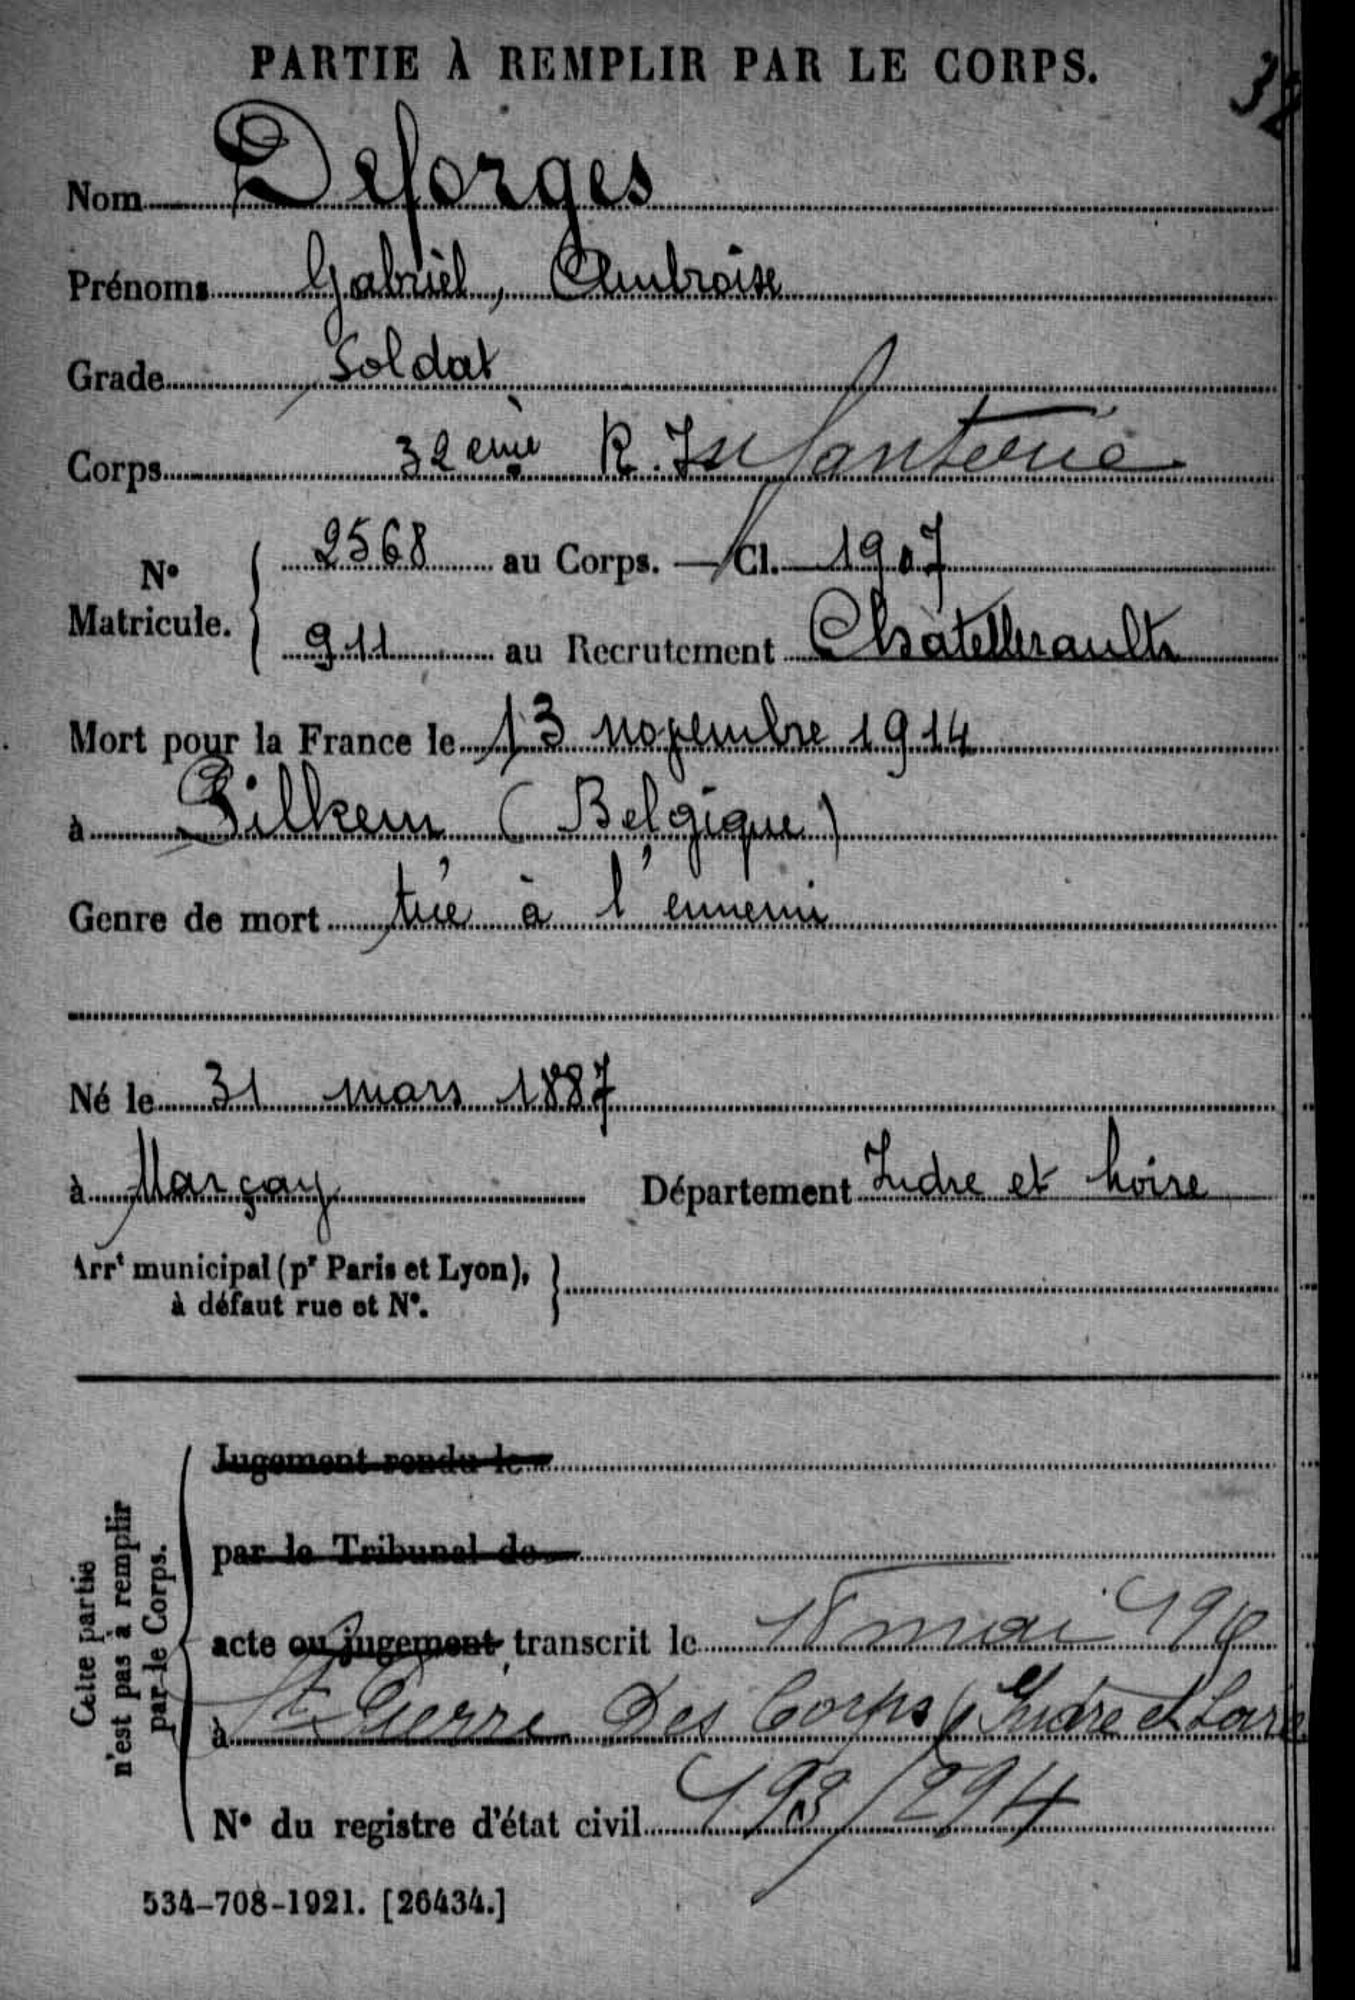 PARTIE À REMPLIR PAR LE CORPS.
Nom Deforges
Prénoms Gabriel, Ambroise
Grade Soldat
Corps 32ème R. Infanterie
N° Matricule. 2568 au Corps. — Cl. 1907
911 au Recrutement Châtellerault
Mort pour la France le 13 novembre 1914
à Bilkem (Belgique)
Genre de mort tué à l'ennemi
Né le 31 mars 1887
à Marçay Département Indre et Loire
Arrt municipal (pr Paris et Lyon),
à défaut rue et N°.
Cette partie
n'est pas à remplir
par le Corps.
Jugement rendu le
par le Tribunal de
acte ou jugement transcrit le 18 mai
à St Pierre des Corps (Indre et Loire
N° du registre d'état civil 193/294
534-708-1921. [26434.]